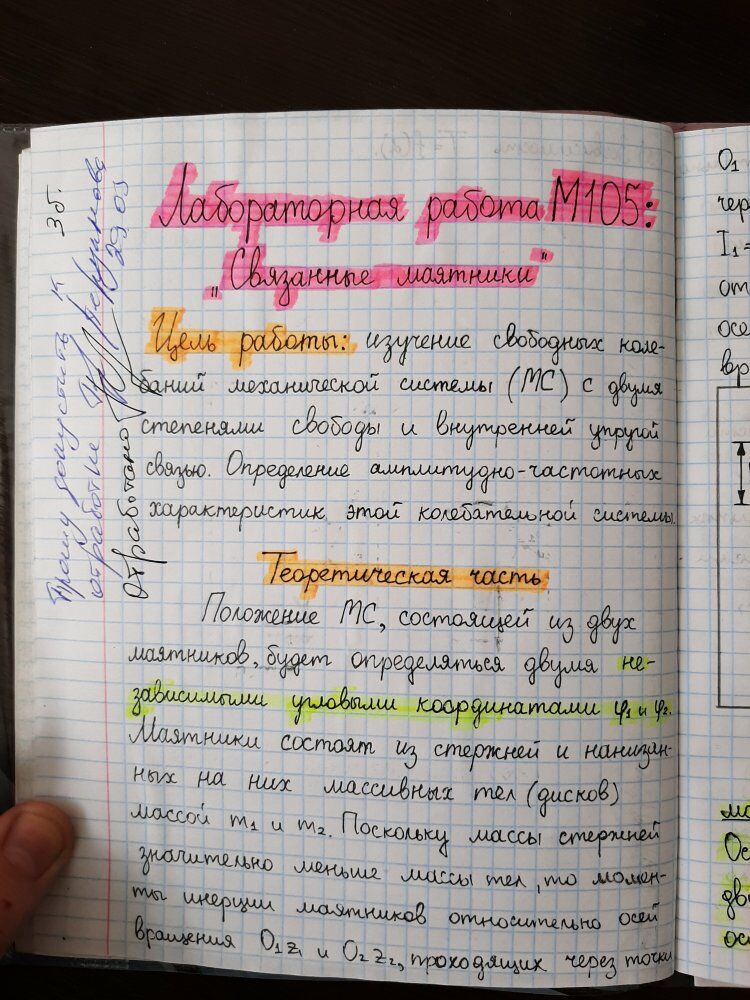 Лабораторная работа М105:
„Связанные маятники"
Цель работы: изучение свободных коле-
баний механической системы (МС) с двумя
степенями свободы и внутренней упругой
связью. Определение амплитудно-частотных
характеристик этой колебательной системы.
Теоретическая часть
Положение МС, состоящей из двух
маятников, будет определяться двумя не-
зависимыми угловыми координатами φ₁ и φ₂.
Маятники состоят из стержней и нанизан-
ных на них массивных тел (дисков)
массой m₁ и m₂. Поскольку массы стержней
значительно меньше массы тел, то момен-
ты инерции маятников относительно осей
вращения O₁z₁ и O₂z₂, проходящих через точки
Прошу допустить к
отработке
Отработано
29.03
3б.
O₁
чер
I₁=
от
осе
вр
мо
Ос
дв
ос